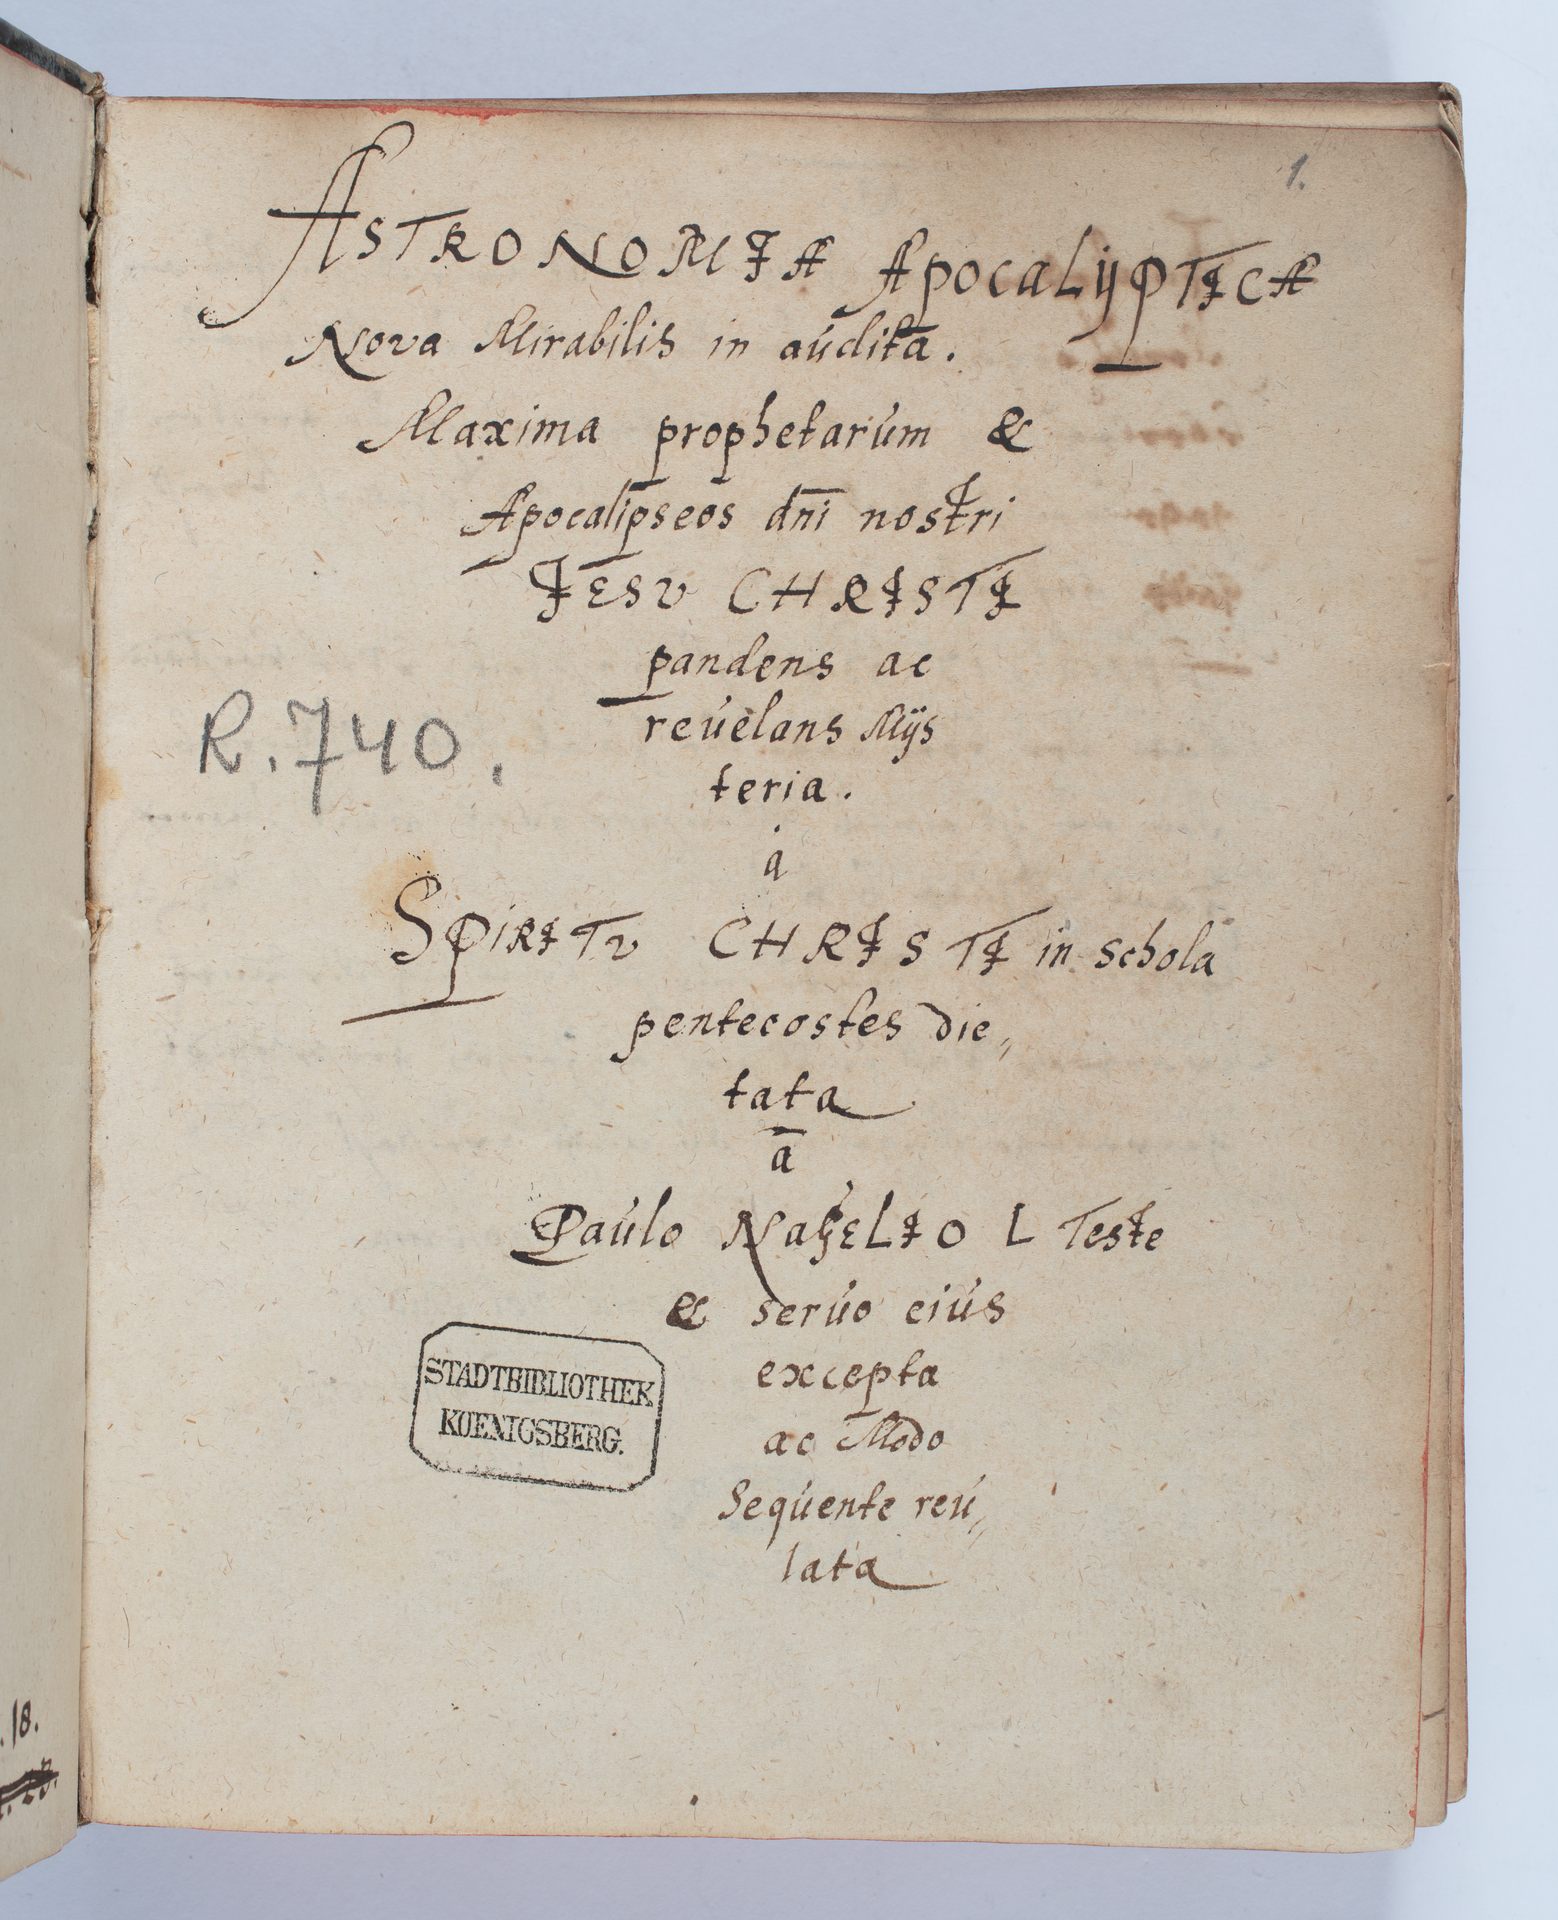 1.
ASTRONOMIA ApocaLÿPTICA
Nova Mirabilis in aúdita.
Maxima prophetarúm &
Apocalipseos dn̄i nostri
IESV CHRISTI
pandens ac
reúelans Mÿs
teria.
à
SPIRITV CHRISTI in schola
pentecostes dic„
tata
a
Paúlo NagELIO L Teste
& serúo eiús
excepta
ac Modo
Seqúente reú„
lata
R.740.
STADTBIBLIOTHEK
KOENIGSBERG.
.18.